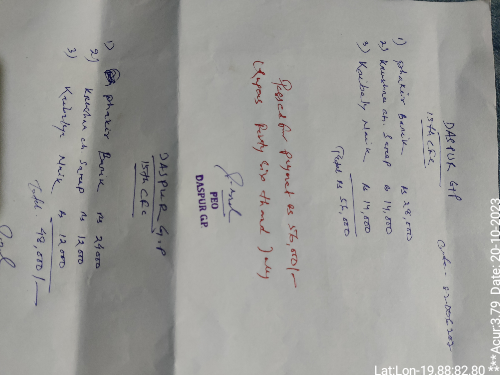 DASPUR G.P
15th CFC
1) phakir Barik Rs 28,000
2) Krushna ch. Sarap Rs 14,000
3) Kaibalya Naik Rs 14,000
Total Rs 56,000
Passed for payment Rs 56,000/-
(Rupees Fifty Six thousand) only
PEO
DASPUR GP
DASPUR G.P
15th CFC
1) phakir Barik Rs 24000
2) Krushna ch Sarap Rs 12000
3) Kaibalya Naik Rs 12000
Total 48,000/-
Lat:Lon-19.88:82.80 ***Acur:3.79 Date: 20.10-2023